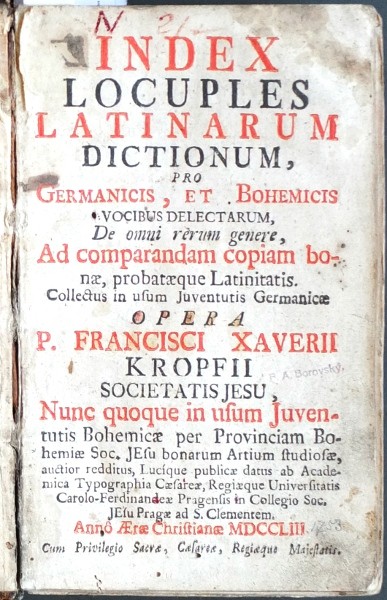 N 2/
INDEX
LOCUPLES
LATINARUM
DICTIONUM,
PRO
GERMANICIS, ET BOHEMICIS
VOCIBUS DELECTARUM,
De omni rerum genere,
Ad comparandam copiam bo-
næ, probatæque Latinitatis.
Collectus in usum Juventutis Germanicæ
OPERA
P. FRANCISCI XAVERII
KROPFII
SOCIETATIS JESU,
Nunc quoque in usum Juven-
tutis Bohemicæ per Provinciam Bo-
hemiæ Soc. JEsu bonarum Artium studiosæ,
auctior redditus, Lucique publicæ datus ab Acade-
mica Typographia Cæsareæ, Regiæque Universitatis
Carolo-Ferdinandeæ Pragensis in Collegio Soc.
JEsu Pragæ ad S. Clementem.
Annô Æræ Christianæ MDCCLIII.
Cum Privilegio Sacræ, Cæsareæ, Regiæque Majestatis.
A. Borovský.